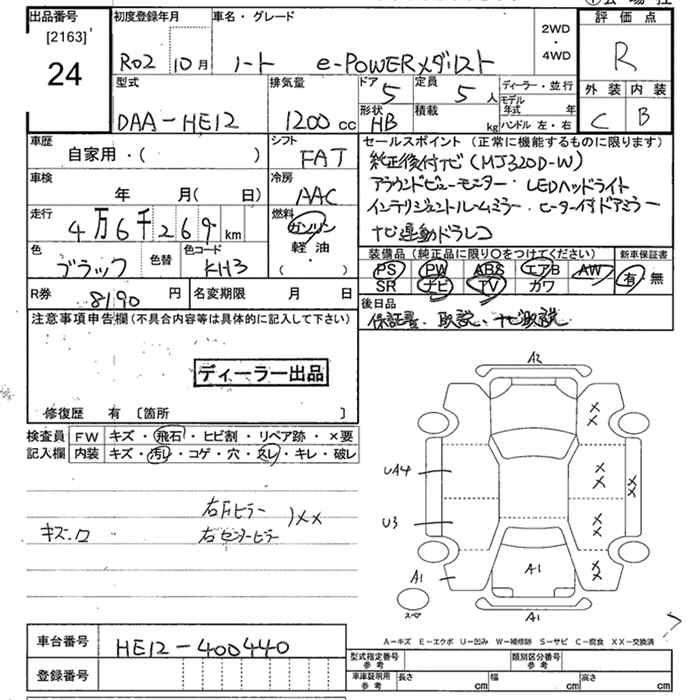 出品番号 初度登録年月 車名・グレード 2WD・4WD 評価点
[2163] 24 R02 10月 ノート e-POWERメダリスト R
型式 排気量 ドア 定員 ディーラー・並行 外装 内装
DAA-HE12 1200cc 5 5人 モデル年式 年 C B
形状 HB 積載 kg ハンドル 左・右
車歴 シフト セールスポイント(正常に機能するものに限ります)
自家用・( ) FAT 純正後付ナビ(MJ320D-W)
車検 冷房 アラウンドビューモニター・LEDヘッドライト
年 月( 日) AAC インテリジェントルームミラー・ヒーター付ドアミラー
走行 燃料 ナビ連動ドラレコ
4万6千269km ガソリン 軽油 ( )
色 色替 色コード 装備品(純正品に限り〇をつけてください) 新車保証書
ブラック KH3 PS PW ABS エアB AW 有・無
SR ナビ TV カワ
R券 8190円 名変期限 月 日 後日品
保証書、取説、ナビ取説
注意事項申告欄(不具合内容等は具体的に記入して下さい)
ディーラー出品
修復歴 有 〔箇所 〕
検査員 FW キズ・飛石・ヒビ割・リペア跡・×要
記入欄 内装 キズ・汚レ・コゲ・穴・スレ・キレ・破レ
右Fピラー
キズ・凹 右センターピラー )XX
A2
XX
UA4 XX XX
U3 XX
A1 A1 XX
スペア A1
A-キズ E-エクボ U-凹み W-補修跡 S-サビ C-腐食 XX-交換済
車台番号 HE12-400440
登録番号
型式指定番号 参考 類別区分番号 参考
車庫証明用 参考 長さ cm 幅 cm 高さ cm